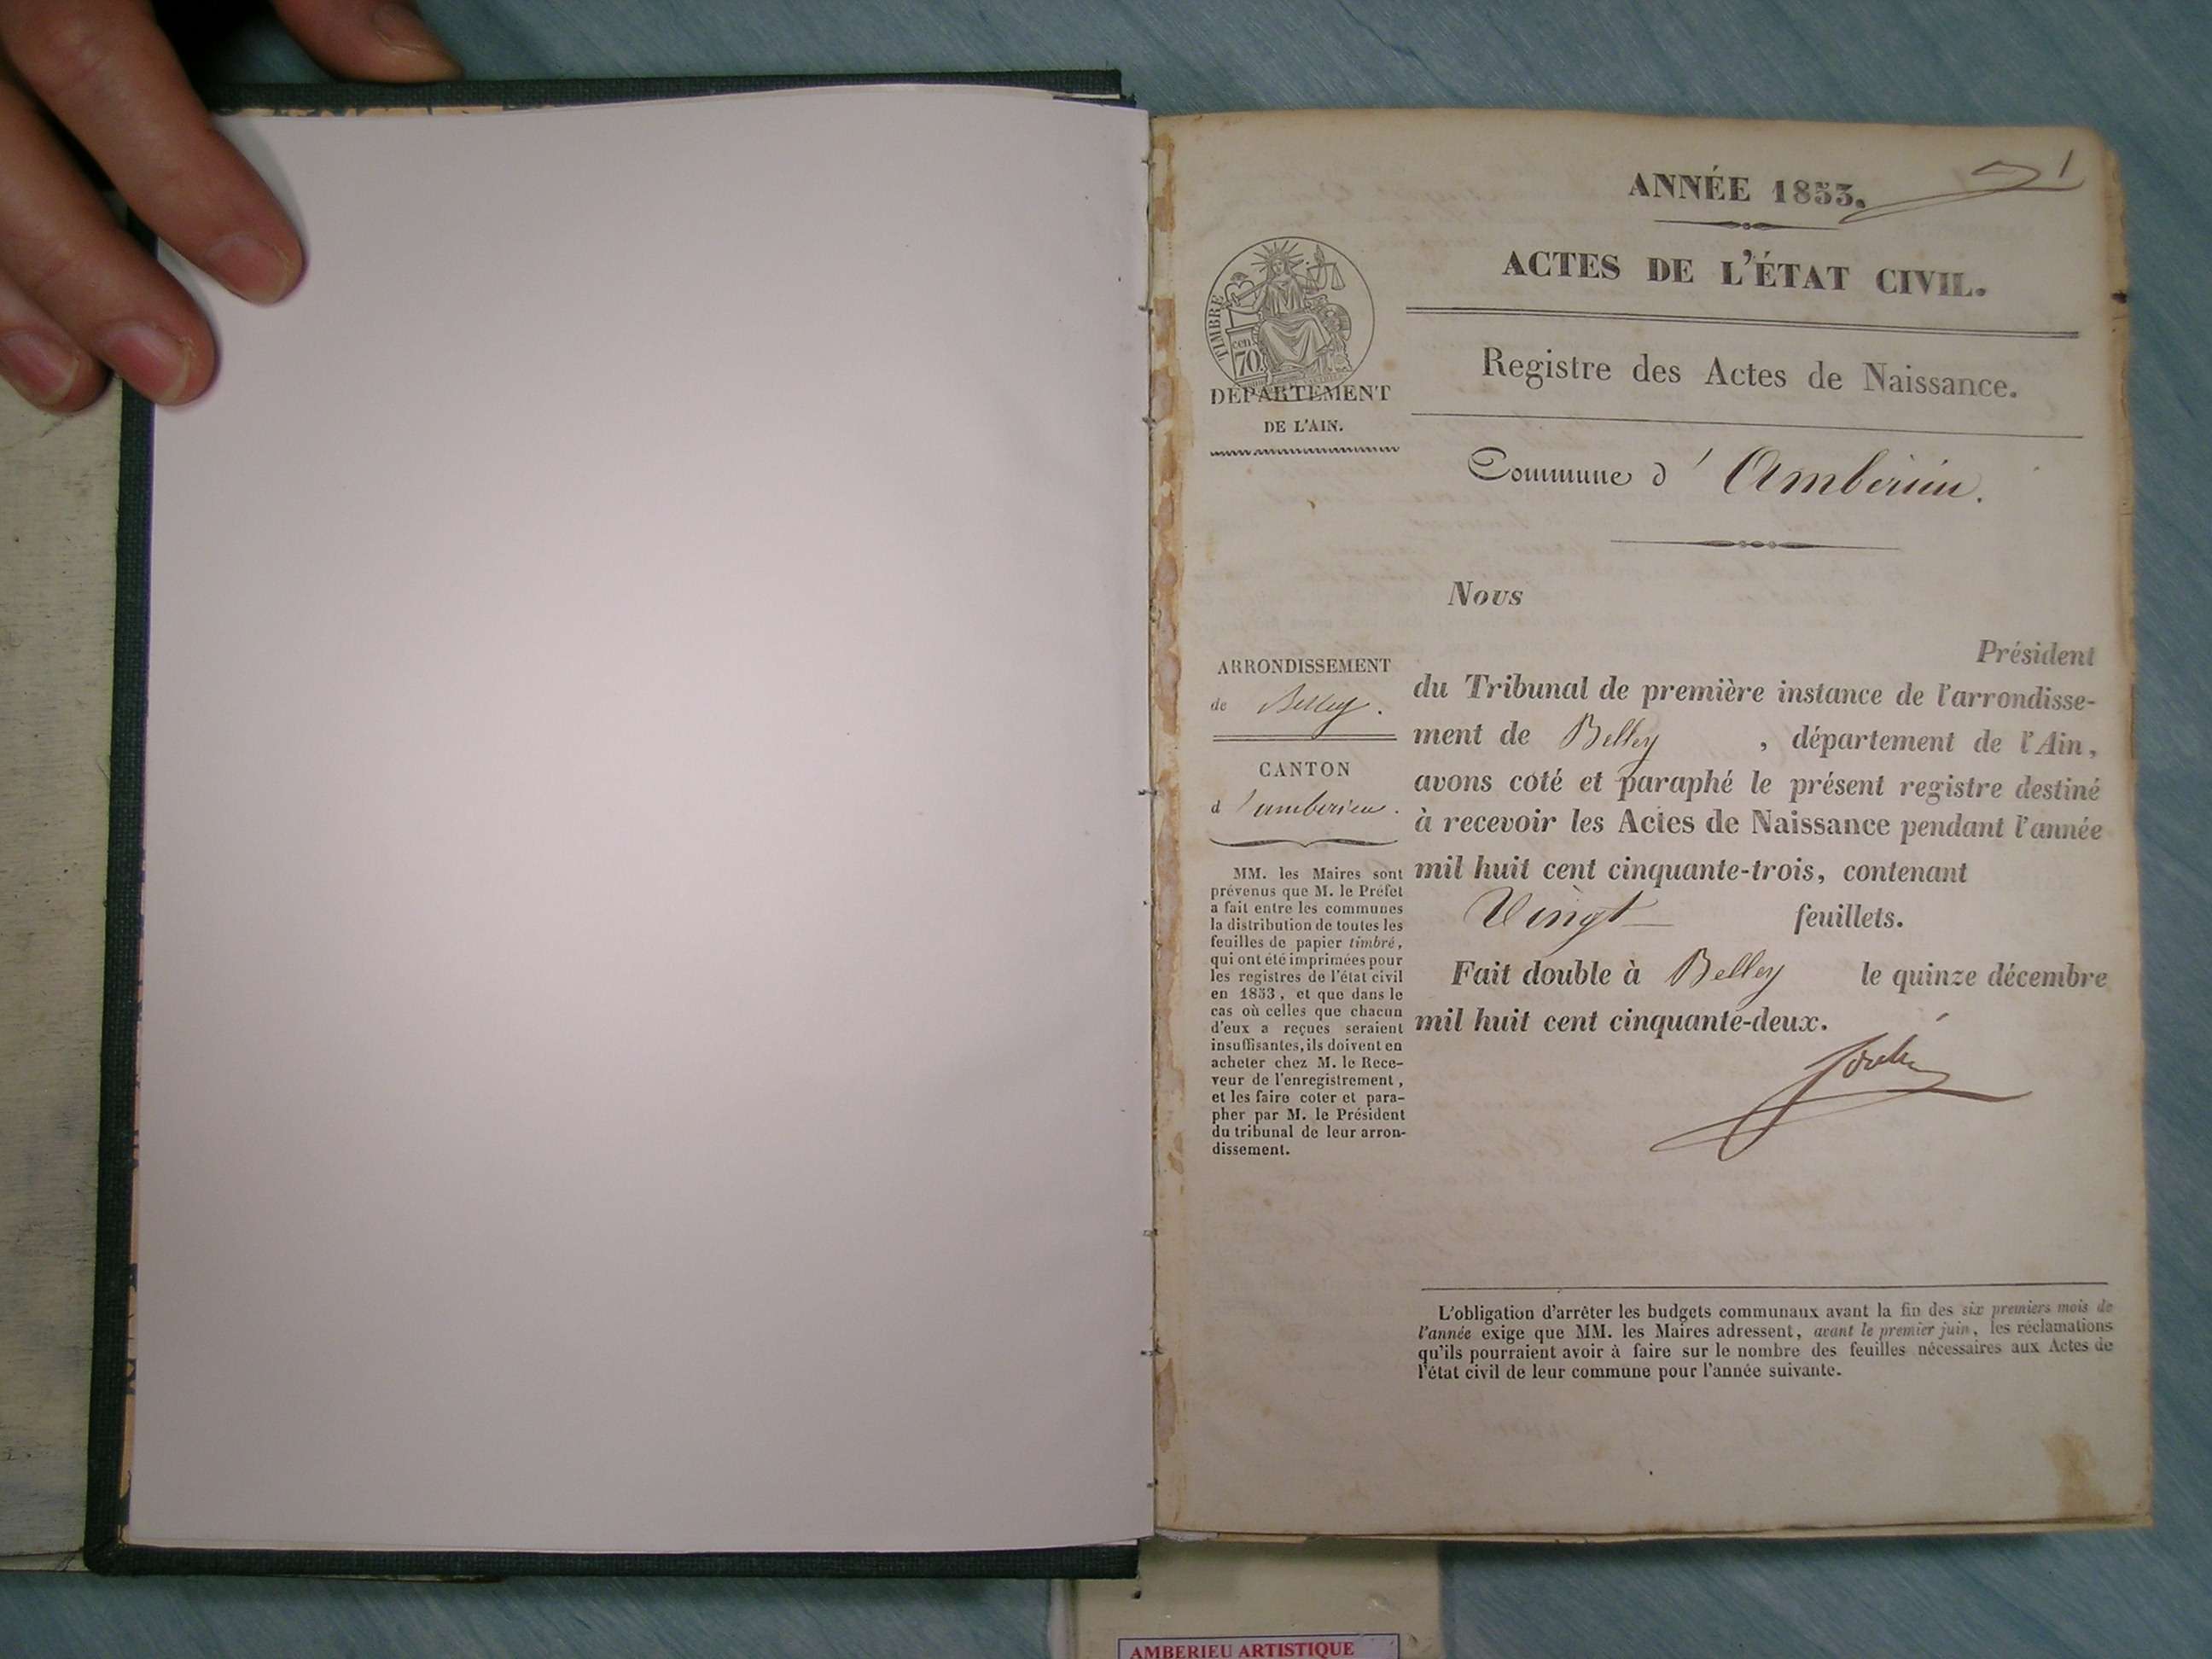 1
ANNÉE 1853.
ACTES DE L'ÉTAT CIVIL.
TIMBRE
cen.
70.
DÉPARTEMENT
DE L'AIN.
Registre des Actes de Naissance.
Commune d'Ambérieu.
ARRONDISSEMENT
de Belley.
CANTON
d'amberieu.
MM. les Maires sont
prévenus que M. le Préfet
a fait entre les communes
la distribution de toutes les
feuilles de papier timbré,
qui ont été imprimées pour
les registres de l'état civil
en 1853, et que dans le
cas où celles que chacun
d'eux a reçues seraient
insuffisantes, ils doivent en
acheter chez M. le Rece-
veur de l'enregistrement,
et les faire coter et para-
pher par M. le Président
du tribunal de leur arron-
dissement.
Nous
Président
du Tribunal de première instance de l'arrondisse-
ment de Belley, département de l'Ain,
avons coté et paraphé le présent registre destiné
à recevoir les Actes de Naissance pendant l'année
mil huit cent cinquante-trois, contenant
Vingt feuillets.
Fait double à Belley le quinze décembre
mil huit cent cinquante-deux.
L'obligation d'arrêter les budgets communaux avant la fin des six premiers mois de
l'année exige que MM. les Maires adressent, avant le premier juin, les réclamations
qu'ils pourraient avoir à faire sur le nombre des feuilles nécessaires aux Actes de
l'état civil de leur commune pour l'année suivante.
AMBERIEU ARTISTIQUE